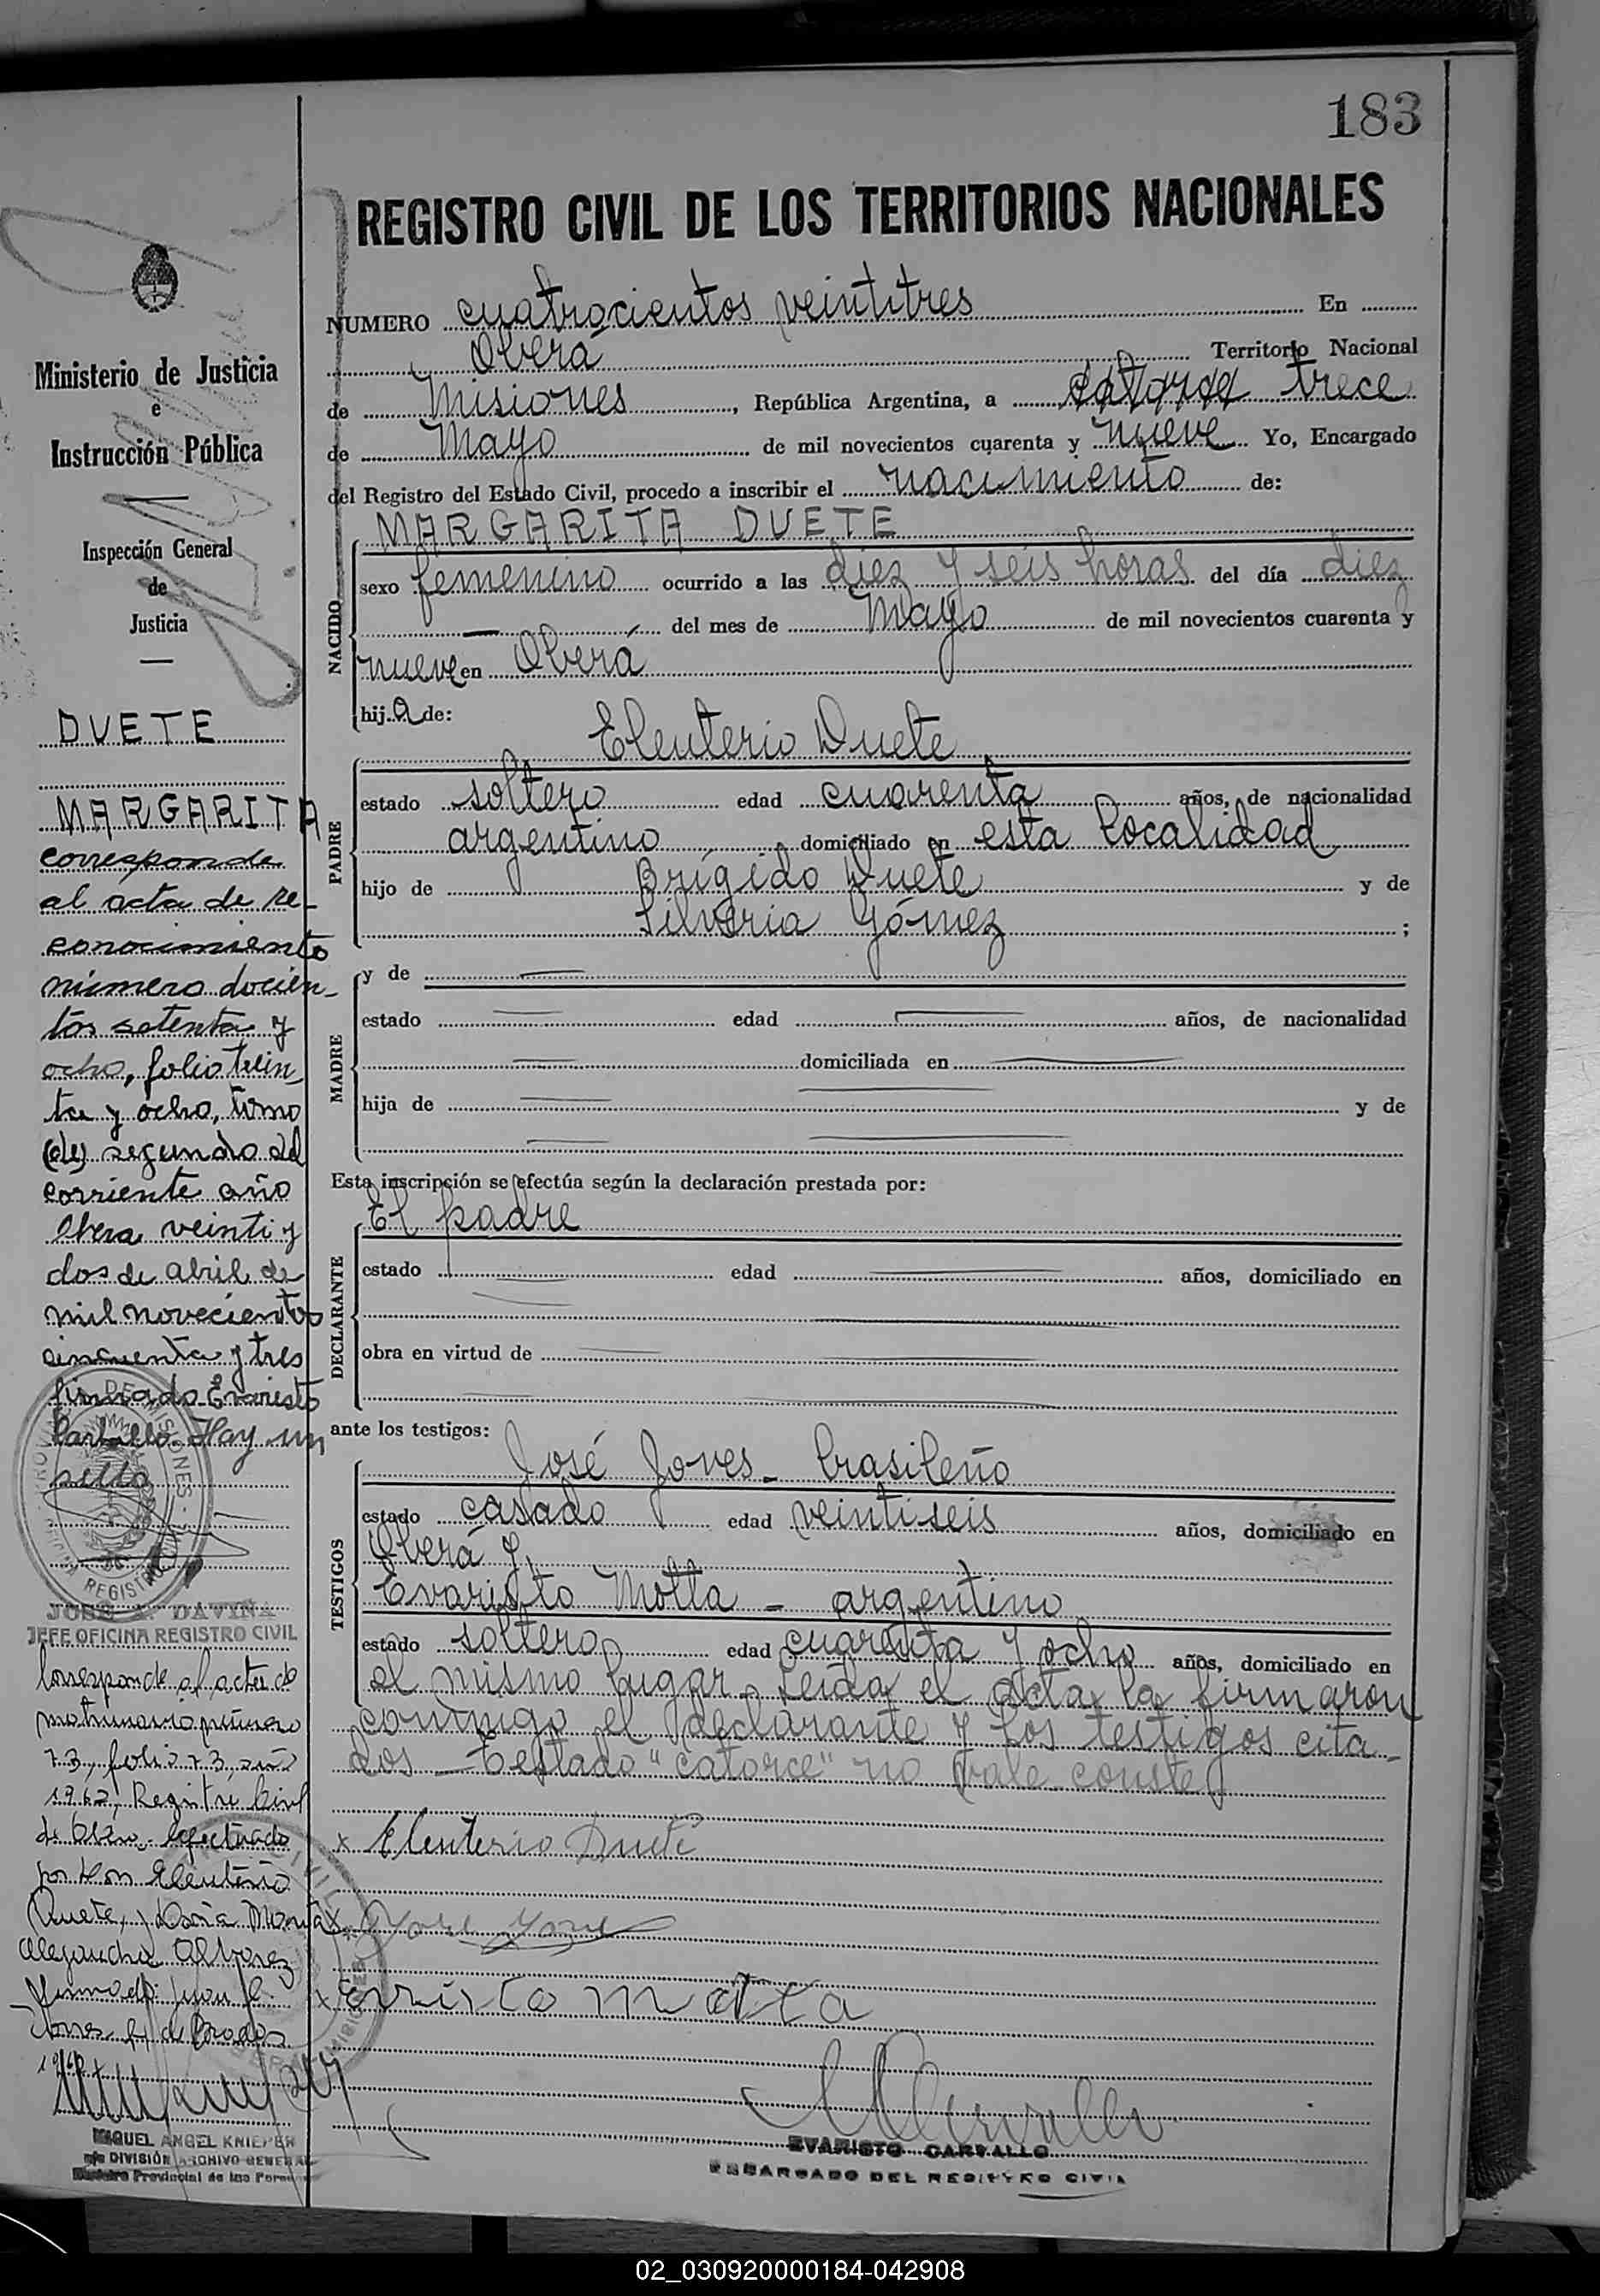 183
REGISTRO CIVIL DE LOS TERRITORIOS NACIONALES
NUMERO cuatrocientos veintitres En
Oberá Territorio Nacional
de Misiones, República Argentina, a catorce trece
de Mayo de mil novecientos cuarenta y nueve Yo, Encargado
del Registro del Estado Civil, procedo a inscribir el nacimiento de:
MARGARITA DUETE
NACIDO
sexo femenino ocurrido a las diez y seis horas del día diez
— del mes de Mayo de mil novecientos cuarenta y
nueve en Oberá
hija de:
Eleuterio Duete
PADRE
estado soltero edad cuarenta años, de nacionalidad
argentino domiciliado en esta localidad
hijo de Brígido Duete y de
Silveria Gómez ;
MADRE
y de —
estado — edad — años, de nacionalidad
— domiciliada en —
hija de — y de
—
Esta inscripción se efectúa según la declaración prestada por:
El padre
DECLARANTE
estado — edad — años, domiciliado en
—
obra en virtud de —
—
ante los testigos:
José Jores - brasileño
TESTIGOS
estado casado edad veintiseis años, domiciliado en
Oberá y
Evaristo Motta - argentino
estado soltero edad cuarenta y ocho años, domiciliado en
el mismo lugar. Leída el acta la firmaron
conmigo el declarante y los testigos cita-
dos — Testado "catorce" no vale conste
x Eleuterio Duete
x Jose
x
EVARISTO CARVALLO
ENCARGADO DEL REGISTRO CIVIL
Ministerio de Justicia
e
Instrucción Pública
Inspección General
de
Justicia
DUETE
MARGARITA
corresponde
al acta de re-
conocimiento
número docien-
tos setenta y
ocho, folio trein-
ta y ocho, tomo
(de) segundo del
corriente año
Obera veinti y
dos de abril de
mil novecientos
cincuenta y tres
firmado Evaristo
Carballo. Hay un
sello
JOSE A. DAVIÑA
JEFE OFICINA REGISTRO CIVIL
Corresponde al acta de
matrimonio número
73, folio 73, año
1962, Registro Civil
de Oberá efectuado
por don Eleuterio
Duete, y Doña María
Alejandra Alvarez
firmado: Juan
MIGUEL ANGEL KNIEPER
DIVISIÓN ARCHIVO GENERAL
Registro Provincial de las Personas
02_030920000184-042908